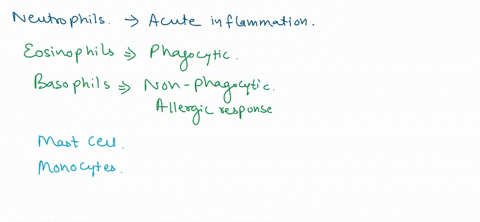 Neutrophils. → Acute inflammation.
Eosinophils ⇒ Phagocytic.
Basophils ⇒ Non-phagocytic.
Allergic response
Mast cell
Monocytes.